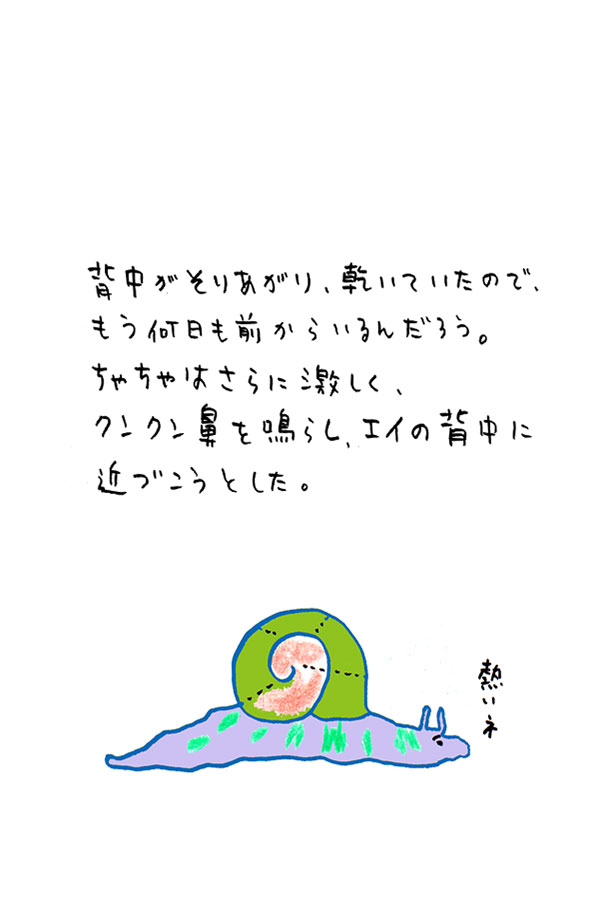 背中がそりあがり、乾いていたので、
もう何日も前からいるんだろう。
ちゃちゃはさらに激しく、
クンクン鼻を鳴らし、エイの背中に
近づこうとした。
熱いネ